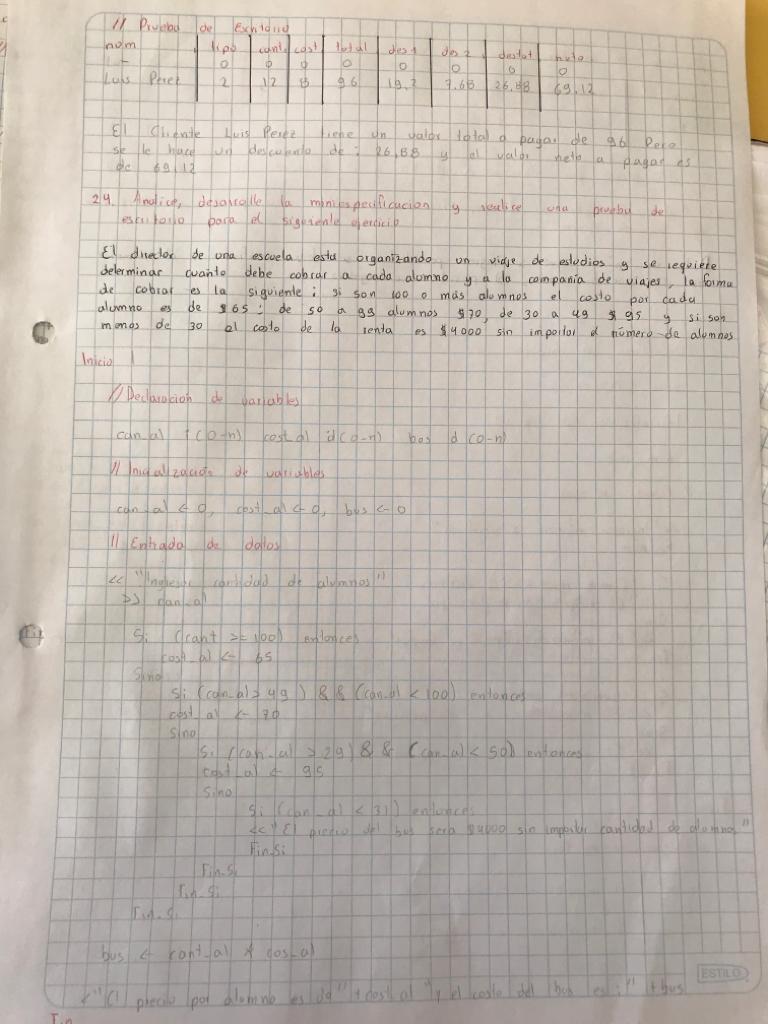 // Prueba de Escritorio
nom tipo cant. cost total des1 des2 destot neto
- 0 0 0 0 0 0 0 0
Luis Perez 2 12 8 96 19,2 7.68 26,88 69,12
El Cliente Luis Perez tiene un valor total a pagar de 96 Pero
se le hace un descuento de: 26,88 y el valor neto a pagar es
de 69,12
24. Analice, desarrolle la miniespecificacion y realice una prueba de
escritorio para el siguiente ejercicio
El director de una escuela esta organizando un viaje de estudios y se requiere
determinar cuanto debe cobrar a cada alumno y a la compania de viajes, la forma
de cobrar es la siguiente: si son 100 o más alumnos el costo por cada
alumno es de $65: de 50 a 99 alumnos $70, de 30 a 49 $95 y si son
menos de 30 el costo de la renta es $4000 sin importar el número de alumnos
Inicio
// Declaracion de variables
can_al i(0-n) cost_al d(0-n) bus d(0-n)
// Inicialización de variables
can_al <- 0, cost_al <- 0, bus <- 0
// Entrada de datos
<< "Ingrese cantidad de alumnos"
>> can_al
Si (cant >= 100) entonces
cost_al <- 65
Sino
Si (can_al > 49) && (can_al < 100) entonces
cost_al <- 70
Sino
Si (can_al > 29) && (can_al < 50) entonces
cost_al <- 95
Sino
Si (can_al < 31) entonces
<< "El precio del bus sera $4000 sin importar cantidad de alumnos"
Fin_Si
Fin_Si
Fin_Si
Fin_Si
bus <- cant_al * cos_al
<"El precio por alumno es de" + cost_al "y el costo del bus es:" + bus
ESTILO
Fin